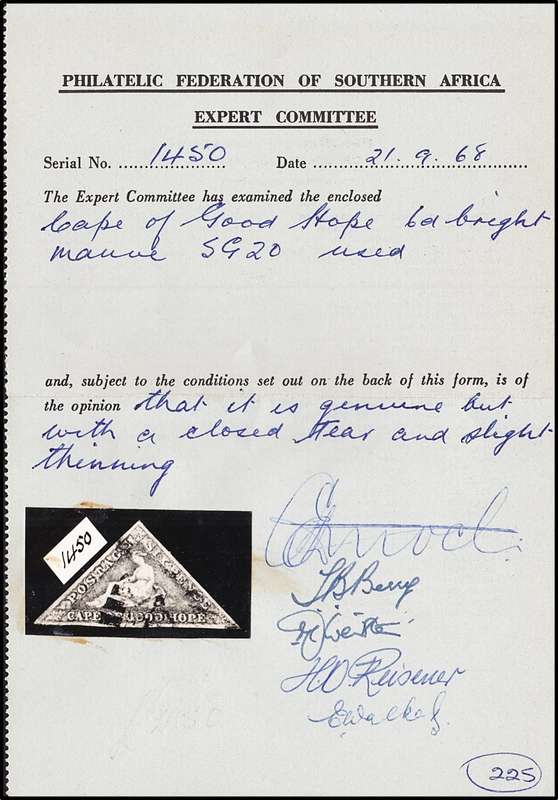 PHILATELIC FEDERATION OF SOUTHERN AFRICA
EXPERT COMMITTEE
Serial No. 1450 Date 21.9.68
The Expert Committee has examined the enclosed
Cape of Good Hope 6d bright
mauve SG20 used
and, subject to the conditions set out on the back of this form, is of
the opinion that it is genuine but
with a closed tear and slight
thinning
1450
POSTAGE
CAPE GOOD HOPE
H.O Reisener
225